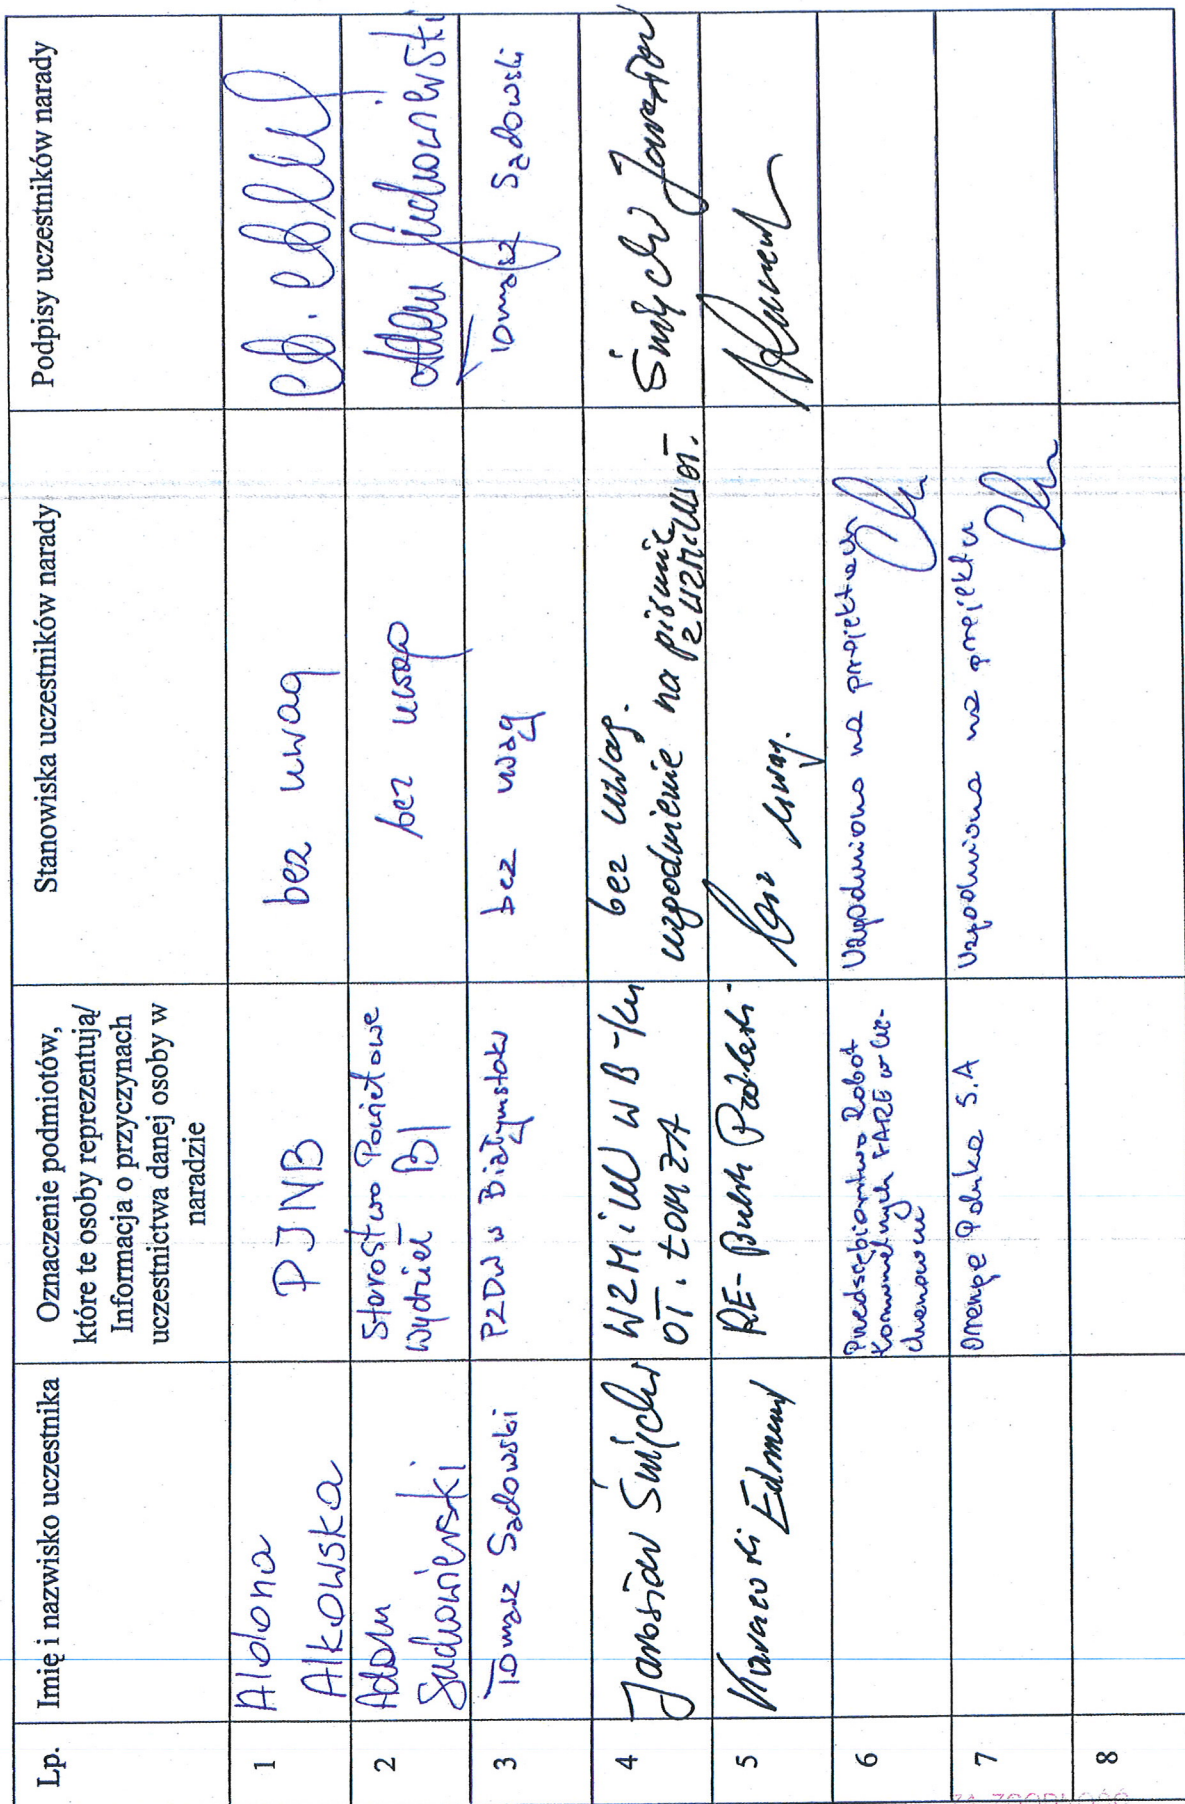 Lp.
Imię i nazwisko uczestnika
Oznaczenie podmiotów,
które te osoby reprezentują/
Informacja o przyczynach
uczestnictwa danej osoby w
naradzie
Stanowiska uczestników narady
Podpisy uczestników narady
1
Aldona
Alkowska
PINB
bez uwag
2
Adam
Suchowierski
Starostwo Powiatowe
Wydział BI
bez uwag
Adam Suchowierski
3
Tomasz Sadowski
PZDW w Białymstoku
bez uwag
Tomasz Sadowski
4
Jarosław
WZMiUW w B-ku
OT. ŁOMŻA
bez uwag.
uzgodnienie na piśmie
z WZMiUW OT.
Jarosław
5
Edmund
RE- Bielsk Podlaski
bez uwag.
6
Przedsiębiorstwo Robót
Komunalnych FARE w Cie-
chanowcu
Uzgodniono na projekcie
7
Orange Polska S.A
Uzgodniono na projekcie
8
ZA ZGODNOŚĆ